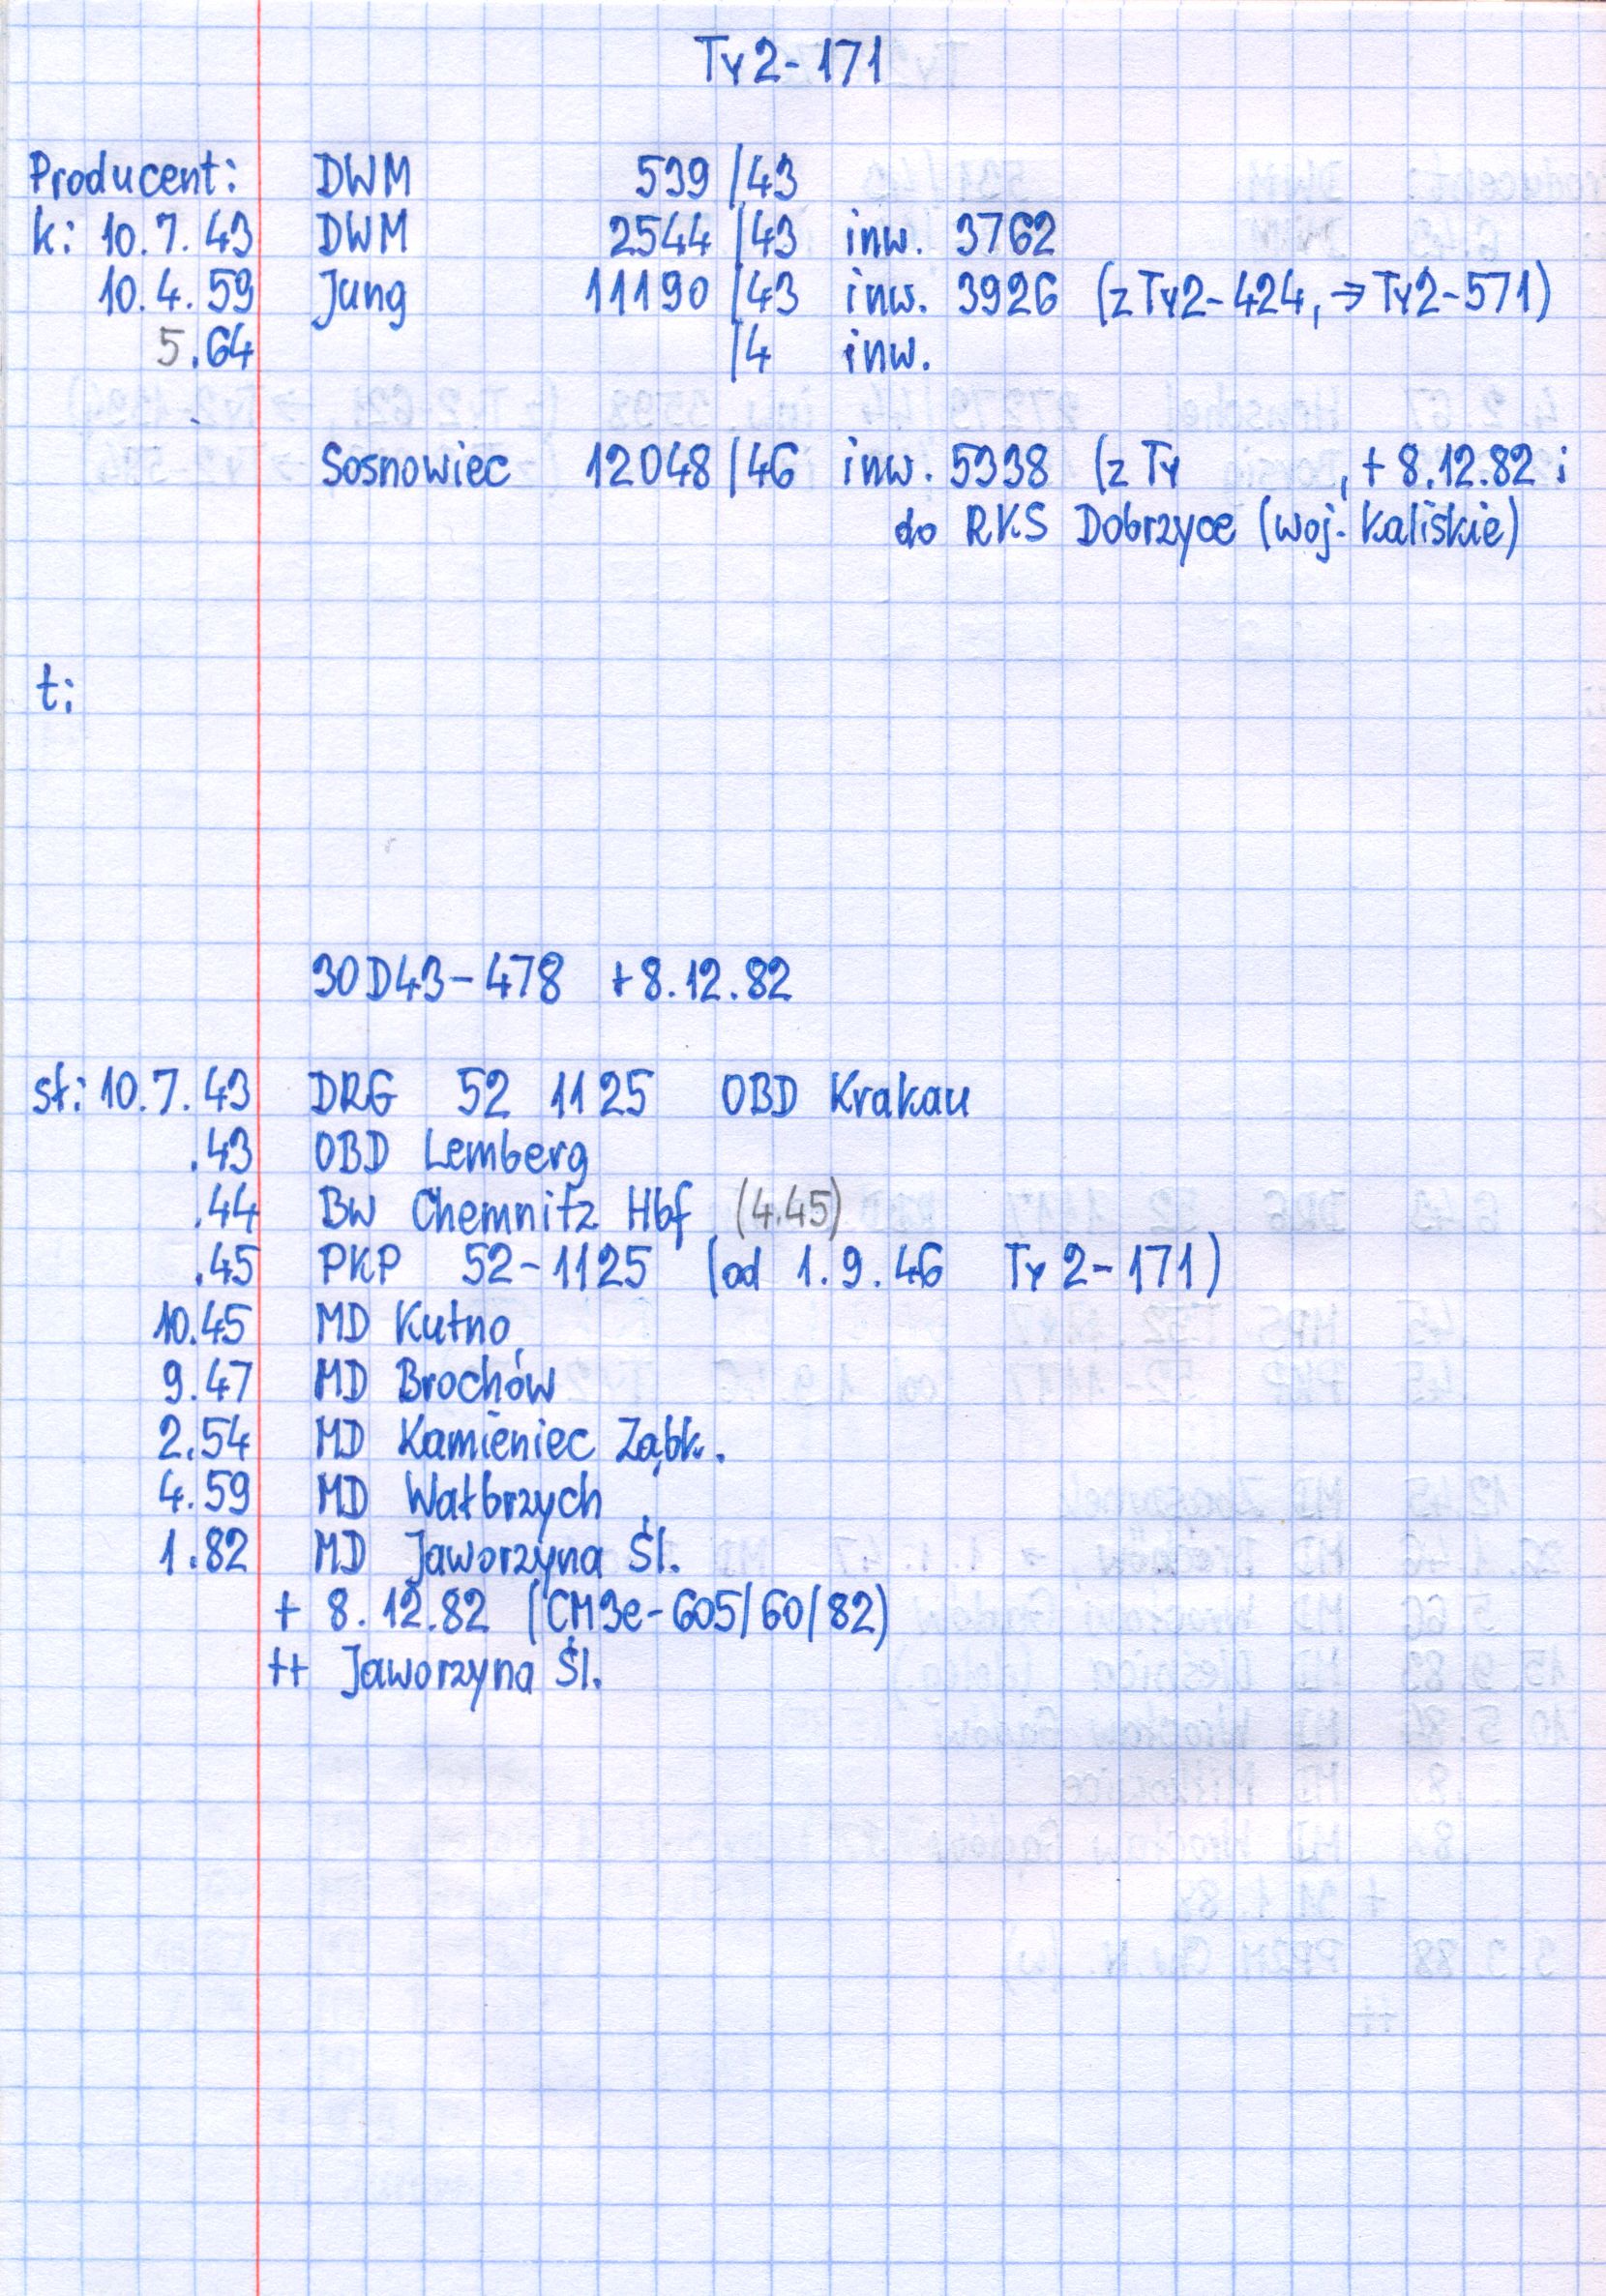 Ty2-171
Producent: DWM 539/43
k: 10.7.43 DWM 2544/43 inw. 3762
10.4.59 Jung 11190/43 inw. 3926 (z Ty2-424, → Ty2-571)
5.64 /4 inw.
Sosnowiec 12048/46 inw. 5938 (z Ty , + 8.12.82 i
do RKS Dobrzyce (woj. kaliskie)
t:
30D43-478 + 8.12.82
st: 10.7.43 DRG 52 1125 OBD Krakau
.43 OBD Lemberg
.44 BW Chemnitz Hbf (4.45)
.45 PKP 52-1125 (od 1.9.46 Ty2-171)
10.45 MD Kutno
9.47 MD Brochów
2.54 MD Kamieniec Ząbk.
4.59 MD Wałbrzych
1.82 MD Jaworzyna Śl.
+ 8.12.82 (CM3e-605/60/82)
++ Jaworzyna Śl.